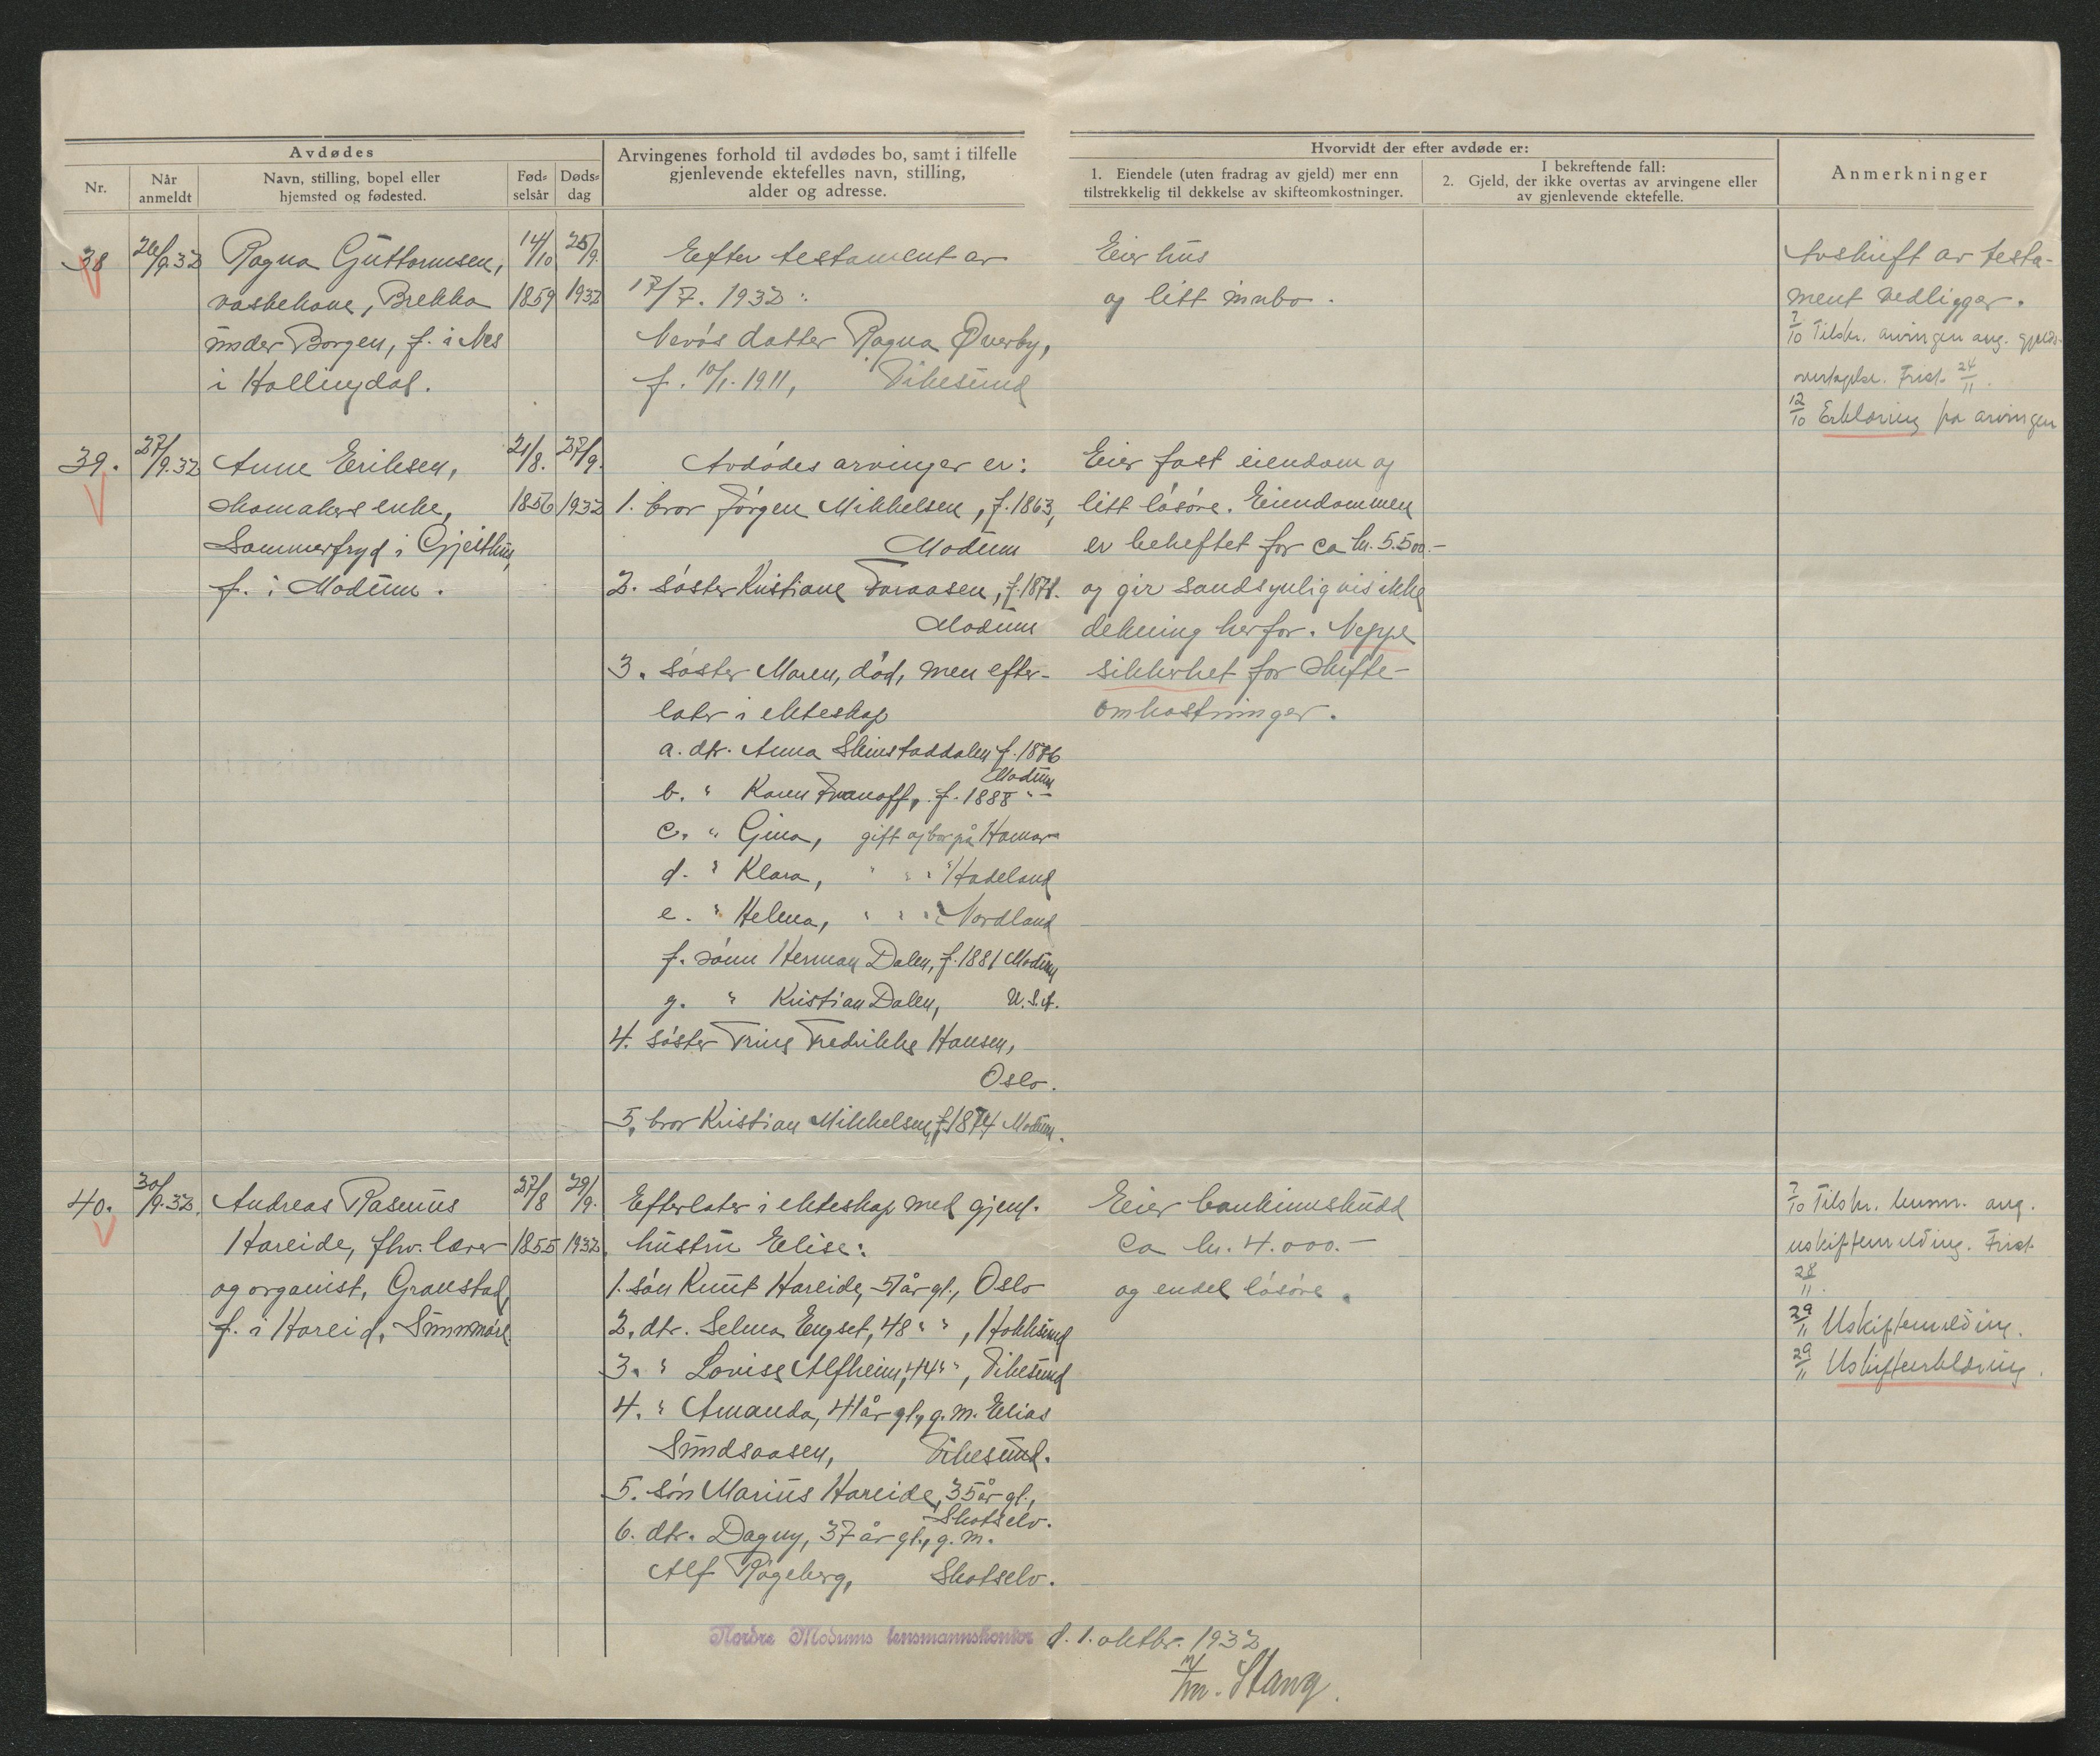 Avdødes
Nr.
Når anmeldt
Navn, stilling, bopel eller hjemsted og fødested.
Fød-selsår
Døds-dag
Arvingenes forhold til avdødes bo, samt i tilfelle
gjenlevende ektefelles navn, stilling,
alder og adresse.
Hvorvidt der efter avdøde er:
1. Eiendele (uten fradrag av gjeld) mer enn
tilstrekkelig til dekkelse av skifteomkostninger.
I bekreftende fall:
2. Gjeld, der ikke overtas av arvingene eller
av gjenlevende ektefelle.
Anmerkninger
38
26/9.32
Ragna Guttormsen,
vaskekone, Brekka
under Borgen, f. i Nes
i Hallingdal.
14/10
1859
25/9.
1932
Efter testament av
17/7. 1932:
Nevøs datter Ragna Øverby,
f. 10/1-1911, Vikesund
Eier hus
og litt innbo.
Avskrift av testa-
ment vedligger.
7/10 Tilskr. arvingen ang. gjelds-
overtagelse. Frist 24/11.
12/10 Erklæring fra arvingen
39.
27/9.32
Anne Eriksen,
skomakers enke,
Sommerfryd i Gjeithus,
f. i Modum.
21/8.
1856
27/9.
1932
Avdødes arvinger er:
1. bror Jørgen Mikkelsen, f. 1863,
Modum
2. søster Kristiane Foraasen, f. 1878.
Modum
3. søster Maren, død, men efter-
later i ekteskap
a. dtr. Anna Skinstaddalen f. 1886
Modum
b. " Karen Ivanoff, f. 1888 "-
c. " Gina, gift og bor på Hamar
d. " Klara, " " " Hadeland
e. " Helma, " " " Nordland
f. sønn Herman Dalen, f. 1881 Modum
g. " Kristian Dalen, U.S.A.
4. søster Trine Fredrikke Hansen,
Oslo.
5. bror Kristian Mikkelsen, f. 1874 Modum.
Eier fast eiendom og
litt løsøre. Eiendommen
er beheftet for ca kr. 5.500.-
og gir sandsynligvis ikke
dekning herfor. Neppe
sikkerhet for skifte-
omkostninger.
40.
30/9.32.
Andreas Rasmus
Hareide, fhv. lærer
og organist, Granstad,
f. i Hareid, Sunnmøre
27/8
1855
29/9.
1932.
Efterlater i ekteskap med gjenl.
hustru Elise:
1. søn Knut Hareide, 51 år gl., Oslo
2. dtr. Selma Engset, 48 " ", Hokksund
3. " Lovise Alfheim, 44 " ", Vikesund
4. " Amanda, 41 år gl., g. m. Elias
Sundsaasen, Vikesund.
5. søn Marius Hareide, 35 år gl.,
Skotselv.
6. dtr. Dagny, 37 år gl., g. m.
Alf Røgeberg, Skotselv.
Eier bankinnskudd
ca kr. 4.000.-
og endel løsøre.
7/10 Tilskr. ang.
uskiftemelding. Frist
28/11.
29/11 Uskiftemelding.
29/11 Uskifteerklæring.
Nordre Modums lensmannskontor d. 1. oktbr. 1932
Stang.